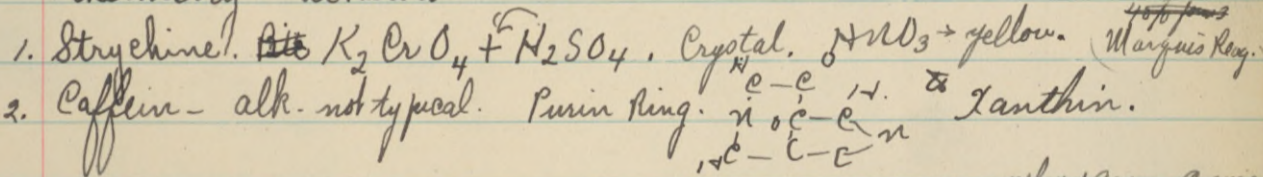 1. Strychine. K2CrO4 + H2SO4. Crystal. HNO3 → yellow. (Marquis Reag.
2. Caffein - alk. not typical. Purin Ring. Xanthin.